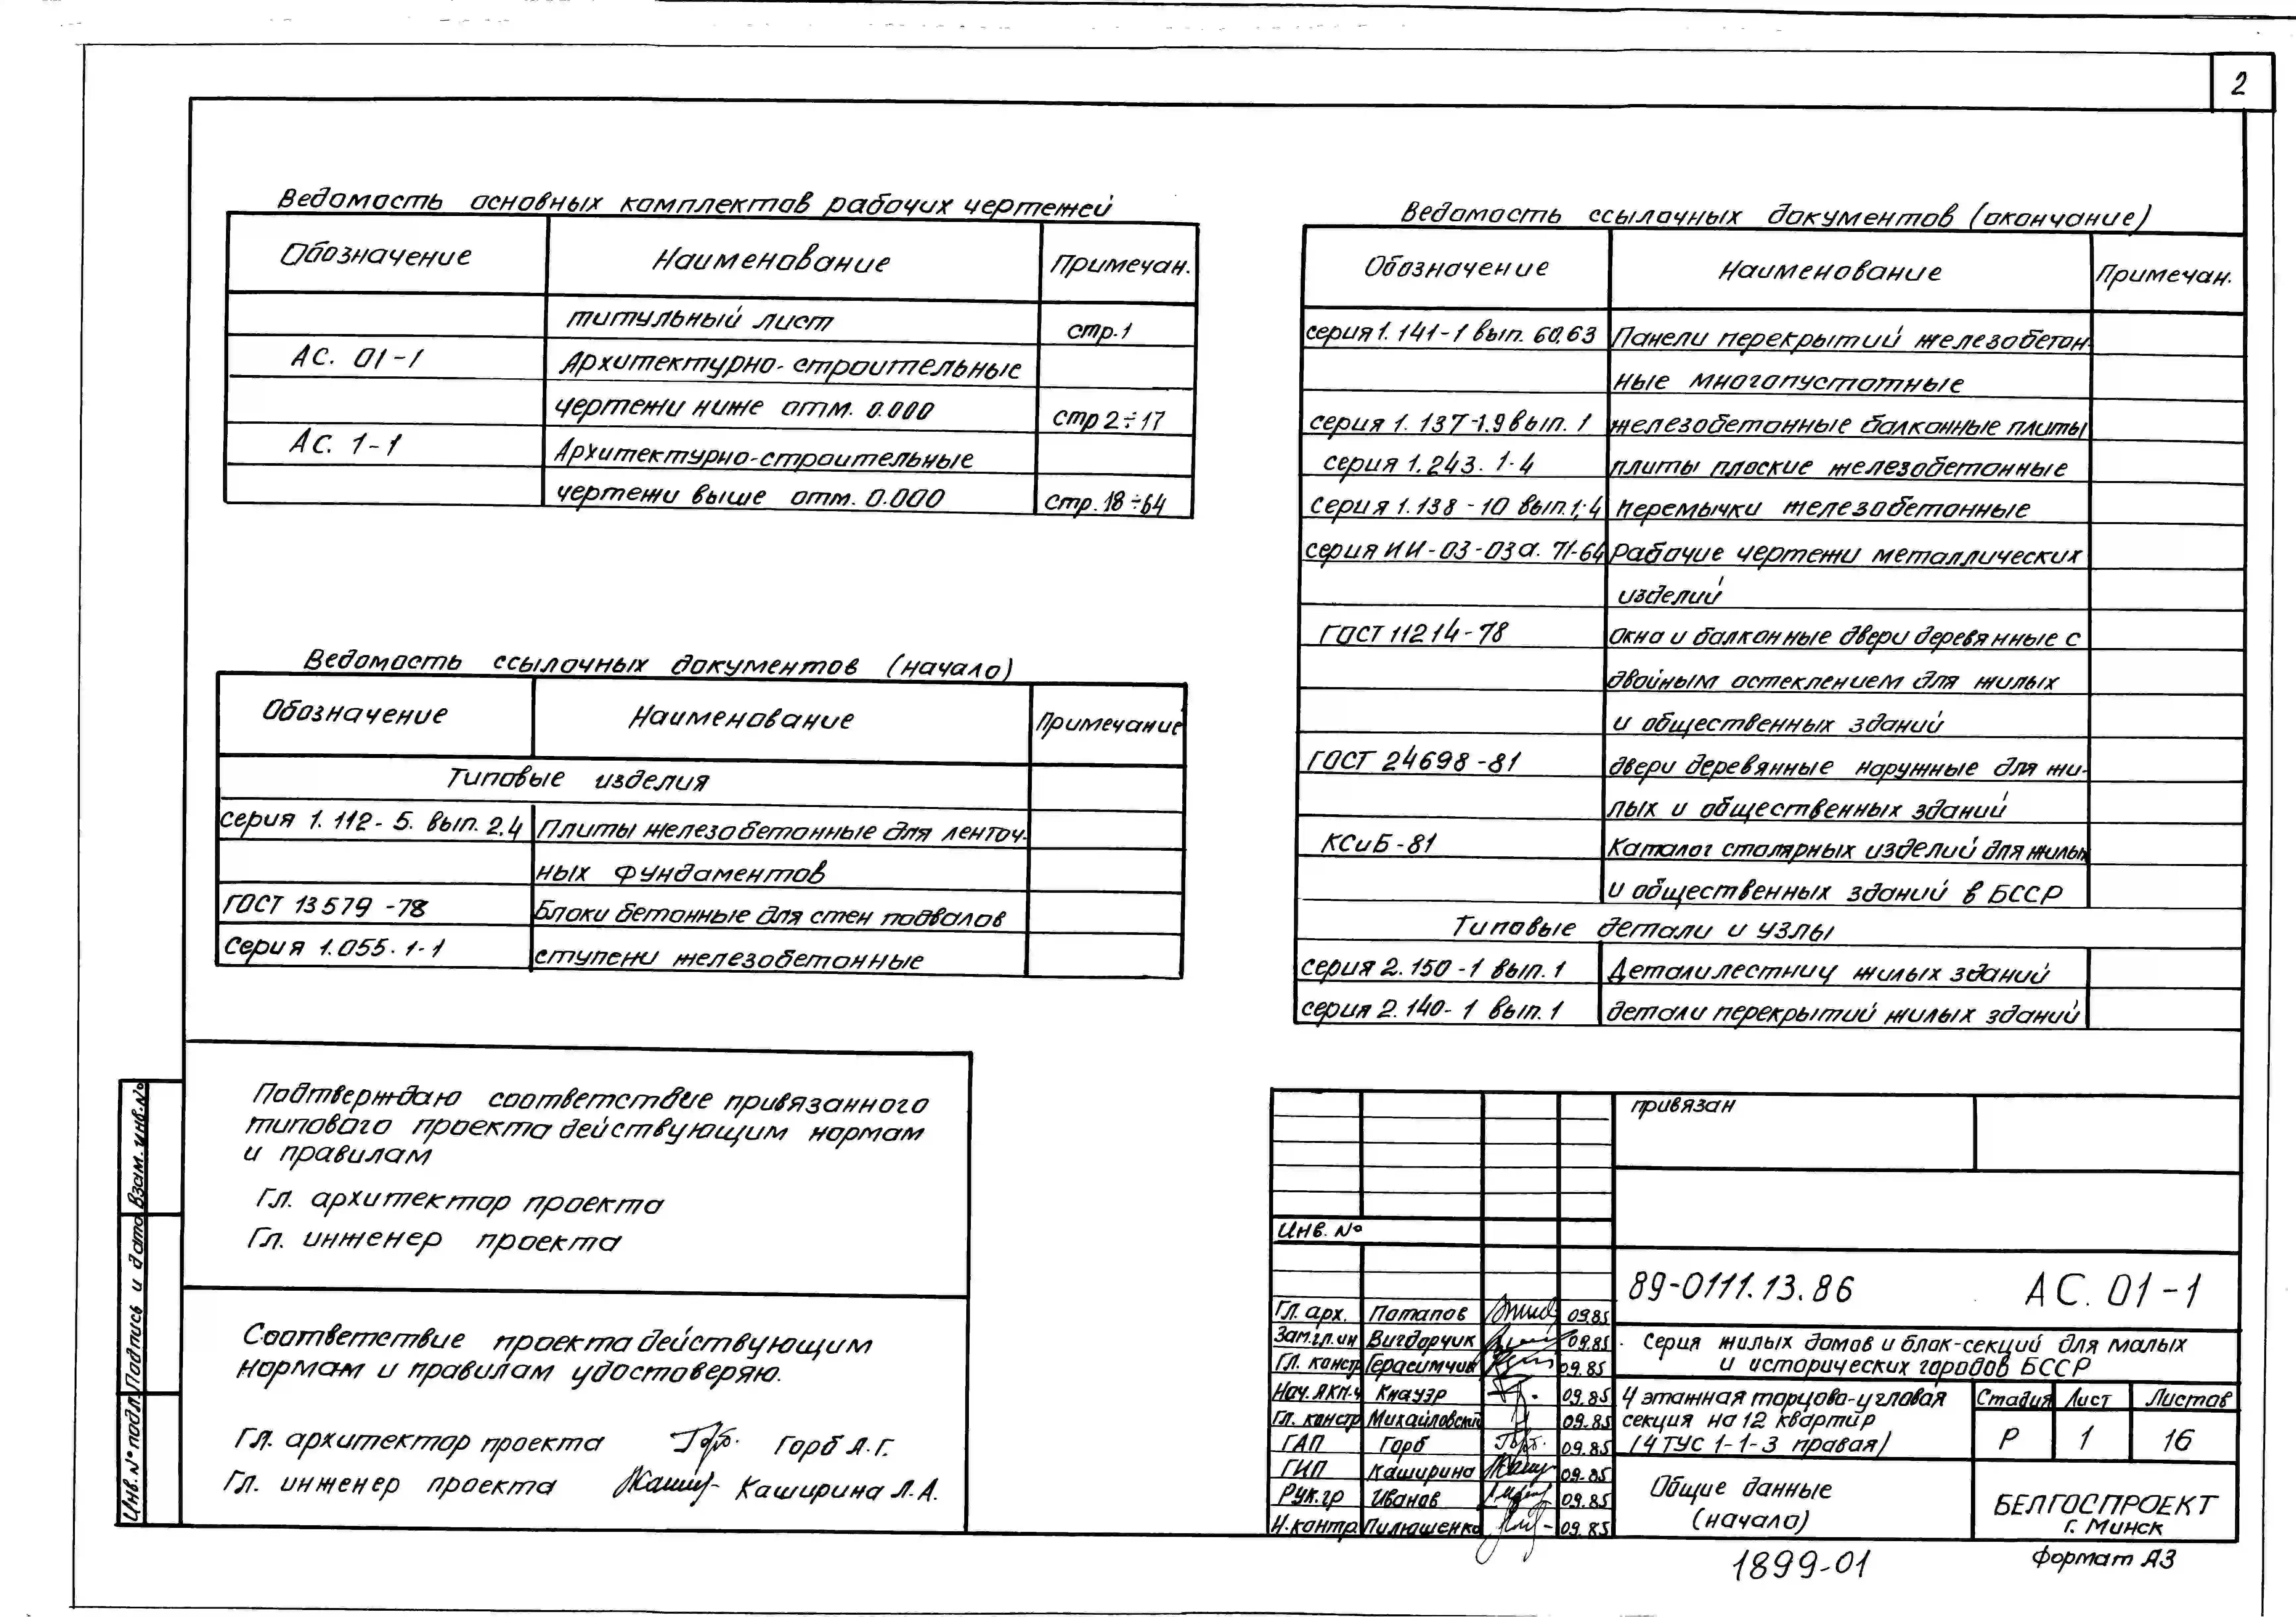 2
Ведомость основных комплектов рабочих чертежей
Обозначение Наименование Примечан.
титульный лист стр.1
АС. 01-1 Архитектурно-строительные
чертежи ниже отм. 0.000 стр 2÷17
АС. 1-1 Архитектурно-строительные
чертежи выше отм. 0.000 стр. 18÷64
Ведомость ссылочных документов (начало)
Обозначение Наименование Примечание
Типовые изделия
серия 1. 112- 5. вып. 2.4 Плиты железобетонные для ленточ-
ных фундаментов
ГОСТ 13579 -78 Блоки бетонные для стен подвалов
Серия 1.055. 1-1 ступени железобетонные
Ведомость ссылочных документов (окончание)
Обозначение Наименование Примечан.
серия 1. 141-1 вып. 60.63 Панели перекрытий железобетон-
ные многопустотные
серия 1. 137-1.9 вып. 1 железобетонные балконные плиты
серия 1.243. 1-4 плиты плоские железобетонные
серия 1.138 -10 вып.1;4 Перемычки железобетонные
серия ИИ-03-03а. 71-64 Рабочие чертежи металлических
изделий
ГОСТ 11214-78 Окна и балконные двери деревянные с
двойным остеклением для жилых
и общественных зданий
ГОСТ 24698 -81 двери деревянные наружные для жи-
лых и общественных зданий
КСиБ-81 Каталог столярных изделий для жилых
и общественных зданий в БССР
Типовые детали и узлы
серия 2. 150 -1 вып. 1 Детали лестниц жилых зданий
серия 2. 140- 1 вып. 1 детали перекрытий жилых зданий
Подтверждаю соответствие привязанного
типового проекта действующим нормам
и правилам
Гл. архитектор проекта
Гл. инженер проекта
Соответствие проекта действующим
нормам и правилам удостоверяю.
Гл. архитектор проекта Горб Л.Г.
Гл. инженер проекта Каширина Л.А.
Взам. инв. №
Подпись и дата
Инв. № подл.
привязан
Инв. №
Гл. арх. Потапов 09.85
Зам.гл.ин Вигдорчик 09.85
Гл. констр Герасимчик 09.85
Нач. АКП-4 Кнауэр 09.85
Гл. констр Михайловский 09.85
ГАП Горб 09.85
ГИП Каширина 09.85
Рук.гр Иванов 09.85
Н.контр. Пилюшенко 09.85
89-0111.13.86 АС. 01-1
Серия жилых домов и блок-секций для малых
и исторических городов БССР
4 этажная торцово-угловая
секция на 12 квартир
(4 ТУС 1-1-3 правая)
Стадия Лист Листов
Р 1 16
Общие данные
(начало)
БЕЛГОСПРОЕКТ
г. Минск
1899-01
Формат А3